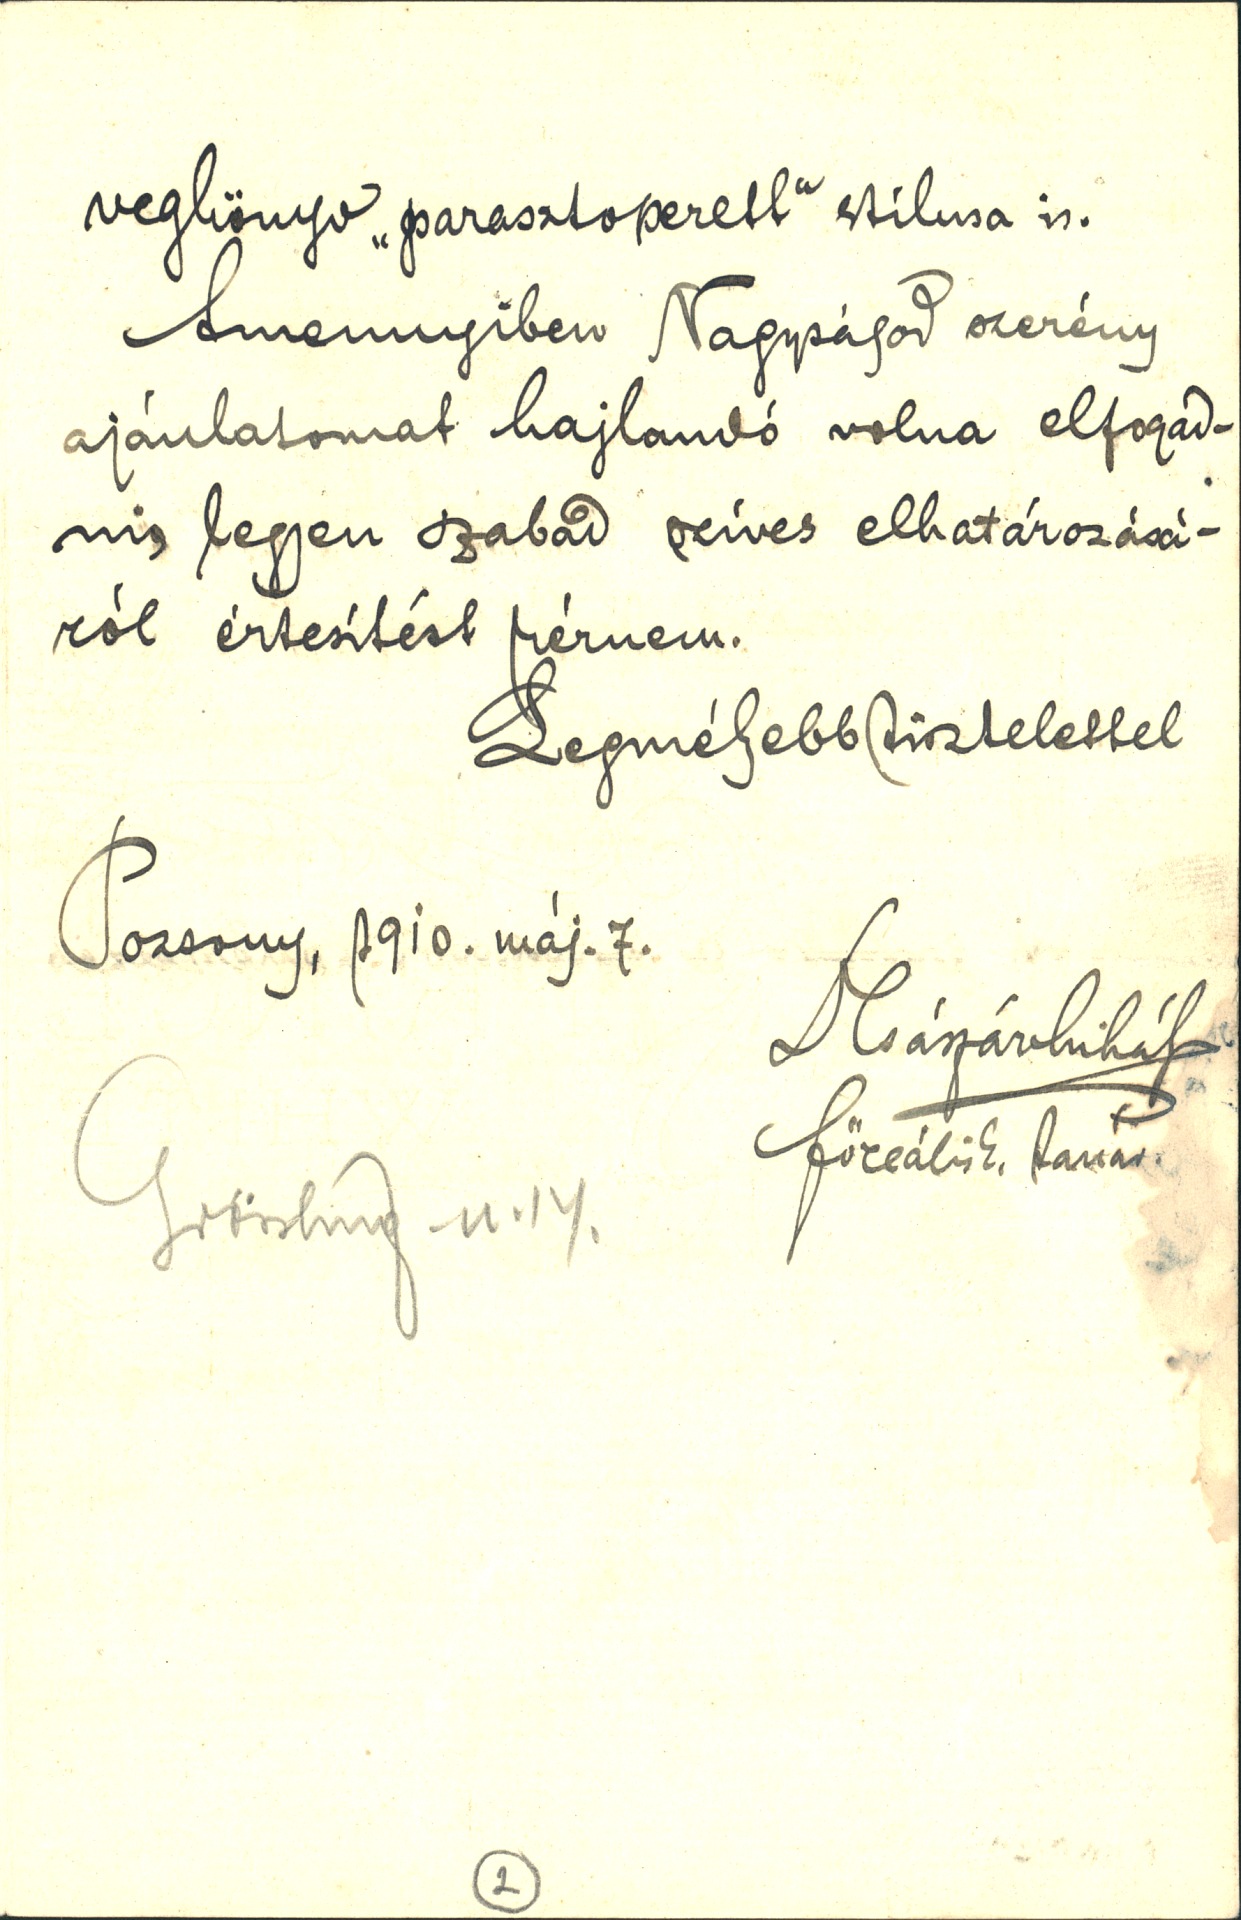 vegkönyv „parasztoperett“ stilusa is.
Amennyiben Nagyságod szerény
ajánlatomat hajlandó volna elfogad-
ni, legyen szabad szíves elhatározásá-
ról értesítést kérnem.
Legmélyebb tisztelettel
Pozsony, 1910. máj. 7.
Császár Mihály
főreálisk. tanár.
Grössling u. 14.
2